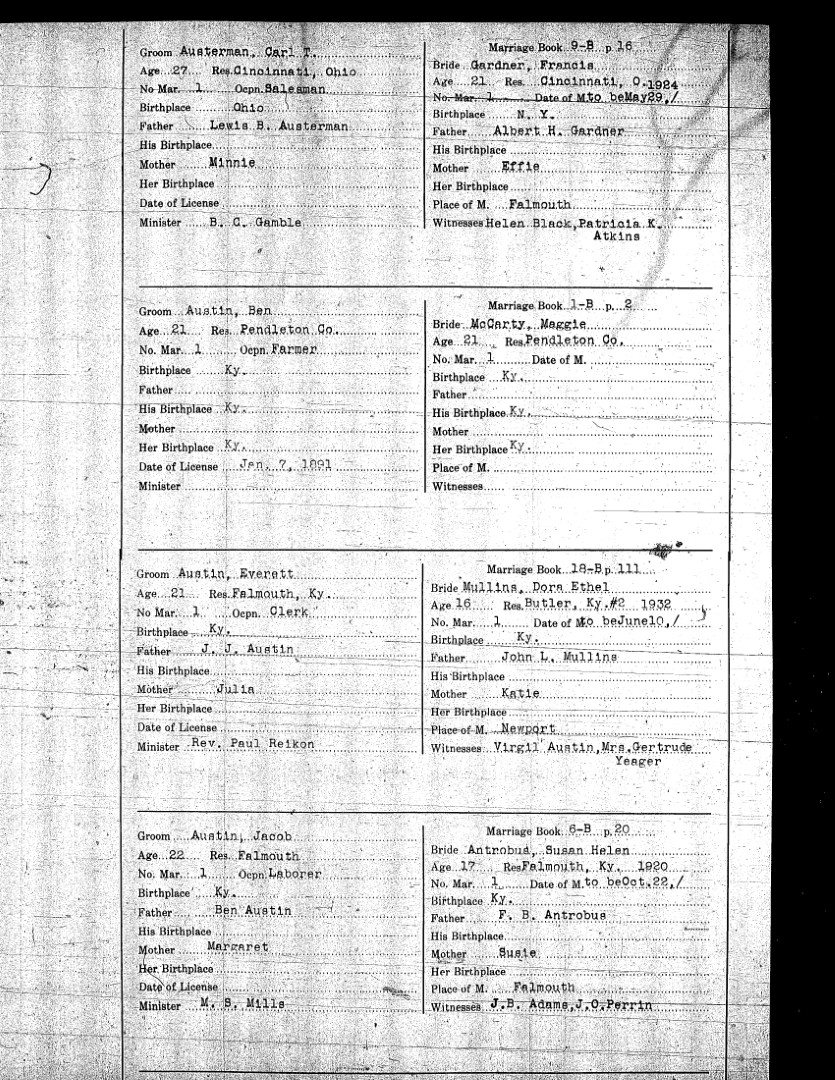 Groom Austerman, Carl T.
Age 27 Res. Cincinnati, Ohio
No Mar. 1 Ocpn. Salesman
Birthplace Ohio
Father Lewis B. Austerman
His Birthplace
Mother Minnie
Her Birthplace
Date of License
Minister B. C. Gamble
Marriage Book 9-B p. 16
Bride Gardner, Francis
Age 21 Res. Cincinnati, O. 1924
No. Mar. 1 Date of M. to be May 29, /
Birthplace N. Y.
Father Albert H. Gardner
His Birthplace
Mother Effie
Her Birthplace
Place of M. Falmouth
Witnesses Helen Black, Patricia K.
Atkins
Groom Austin, Ben
Age 21 Res. Pendleton Co.
No. Mar. 1 Ocpn. Farmer
Birthplace Ky.
Father
His Birthplace Ky.
Mother
Her Birthplace Ky.
Date of License Jan. 7, 1891
Minister
Marriage Book 1-B p. 2
Bride McCarty, Maggie
Age 21 Res. Pendleton Co.
No. Mar. 1 Date of M.
Birthplace Ky.
Father
His Birthplace Ky.
Mother
Her Birthplace Ky.
Place of M.
Witnesses
Groom Austin, Everett
Age 21 Res. Falmouth, Ky.
No Mar. 1 Ocpn. Clerk
Birthplace Ky.
Father J. J. Austin
His Birthplace
Mother Julia
Her Birthplace
Date of License
Minister Rev. Paul Reikon
Marriage Book 18-B p. 111
Bride Mullins, Dora Ethel
Age 16 Res. Butler, Ky. #2 1932
No. Mar. 1 Date of M. to be June 10, /
Birthplace Ky.
Father John L. Mullins
His Birthplace
Mother Katie
Her Birthplace
Place of M. Newport
Witnesses Virgil Austin, Mrs. Gertrude
Yeager
Groom Austin, Jacob
Age 22 Res. Falmouth
No. Mar. 1 Ocpn. Laborer
Birthplace Ky.
Father Ben Austin
His Birthplace
Mother Margaret
Her Birthplace
Date of License
Minister M. S. Mills
Marriage Book 6-B p. 20
Bride Antrobus, Susan Helen
Age 17 Res. Falmouth, Ky. 1920
No. Mar. 1 Date of M. to be Oct. 22, /
Birthplace Ky.
Father F. B. Antrobus
His Birthplace
Mother Susie
Her Birthplace
Place of M. Falmouth
Witnesses J.B. Adams, J.O. Perrin